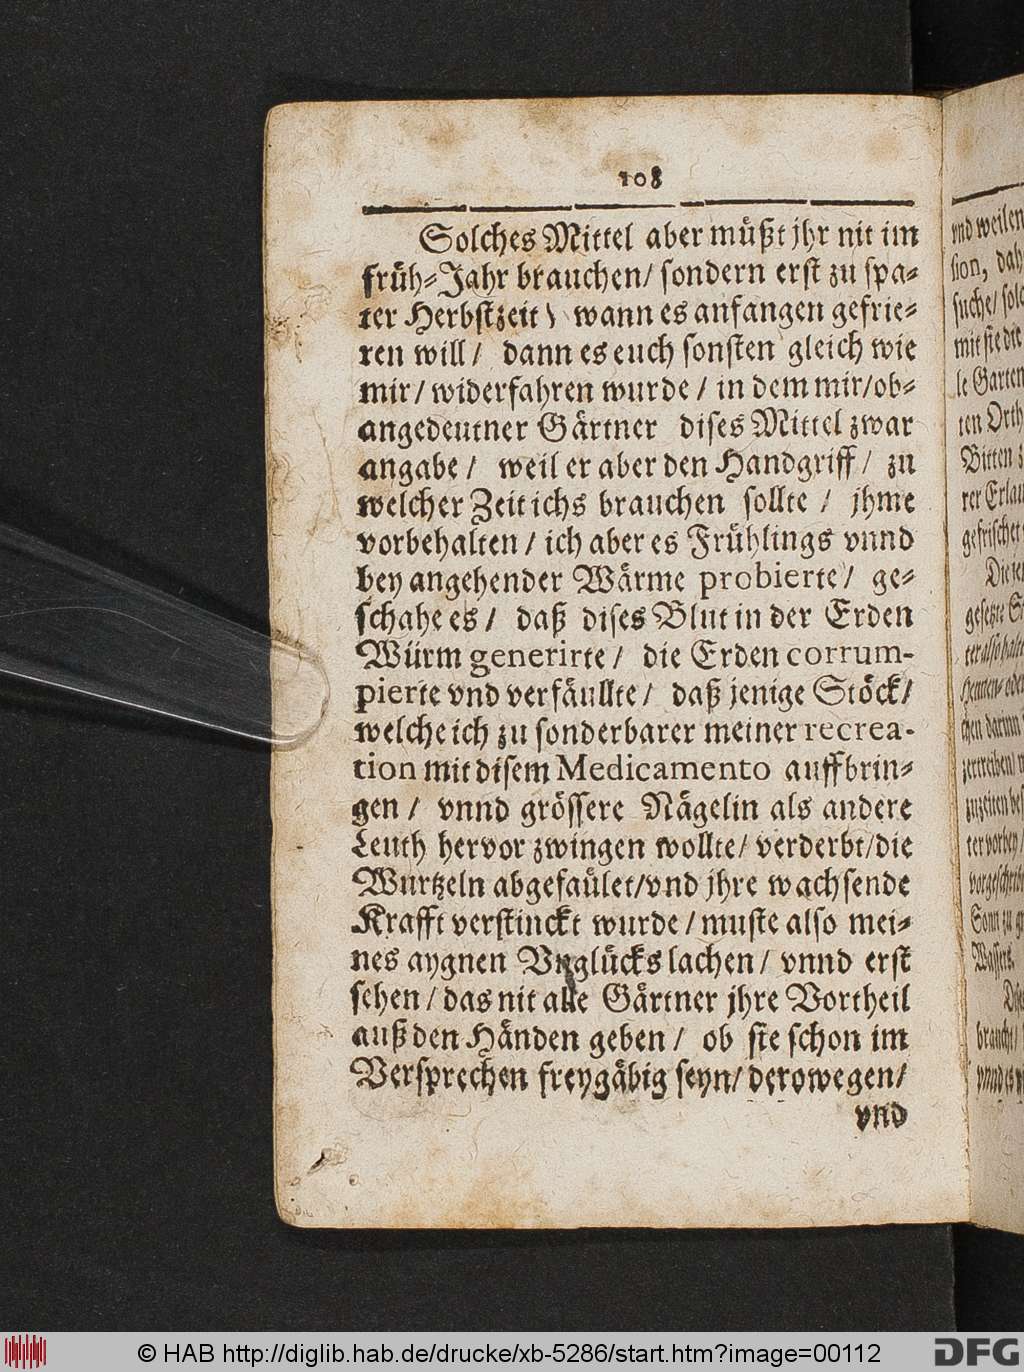 108
Solches Mittel aber müßt jhr nit im
früh-Jahr brauchen/ sondern erst zu spa-
ter Herbstzeit \ wann es anfangen gefrie-
ren will/ dann es euch sonsten gleich wie
mir/ widerfahren wurde/ in dem mir/ob-
angedeutner Gärtner dises Mittel zwar
angabe/ weil er aber den Handgriff/ zu
welcher Zeit ichs brauchen sollte/ jhme
vorbehalten/ ich aber es Frühlings vnnd
bey angehender Wärme probierte/ ge-
schahe es/ daß dises Blut in der Erden
Würm generirte/ die Erden corrum-
pierte vnd verfäullte/ daß jenige Stöck/
welche ich zu sonderbarer meiner recrea-
tion mit disem Medicamento auffbrin-
gen/ vnnd grössere Nägelin als andere
Leuth hervor zwingen wollte/ verderbt/die
Wurtzeln abgefaület/vnd jhre wachsende
Krafft verstinckt wurde/ muste also mei-
nes aygnen Vnglücks lachen/ vnnd erst
sehen/ das nit alle Gärtner jhre Vortheil
auß den Händen geben/ ob sie schon im
Versprechen freygäbig seyn/ derowegen/
vnd
vnd weilen
sion, dah
suche/ sol
mit sie die
le Garten
ten Orth
Bitten z
rer Erlau
gefrischet
gesetzte S
ter also halte
Hennen- oder
chen darunn
zertreiben/
ter vorbey/
vorgeschrib
Sonn zu g
Wassers.
Dise
braucht/
© HAB http://diglib.hab.de/drucke/xb-5286/start.htm?image=00112
DFG